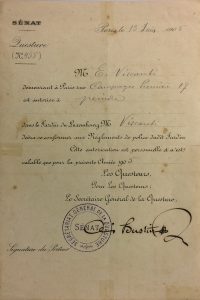 SÉNAT
Questure
(N° 955)
Paris, le 1er Juin 190
M E. Visconti
demeurant à Paris rue Campagne Première 17
est autorisé à peindre
dans le Jardin du Luxembourg. M Visconti
devra se conformer aux Règlements de police dudit Jardin
Cette autorisation est personnelle et n'est
valable que pour la présente Année 190
Les Questeurs,
Pour Les Questeurs:
Le Secrétaire Général de la Questure,
SECRÉTARIAT GÉNÉRAL DE LA QUESTURE
SÉNAT
Signature du Porteur